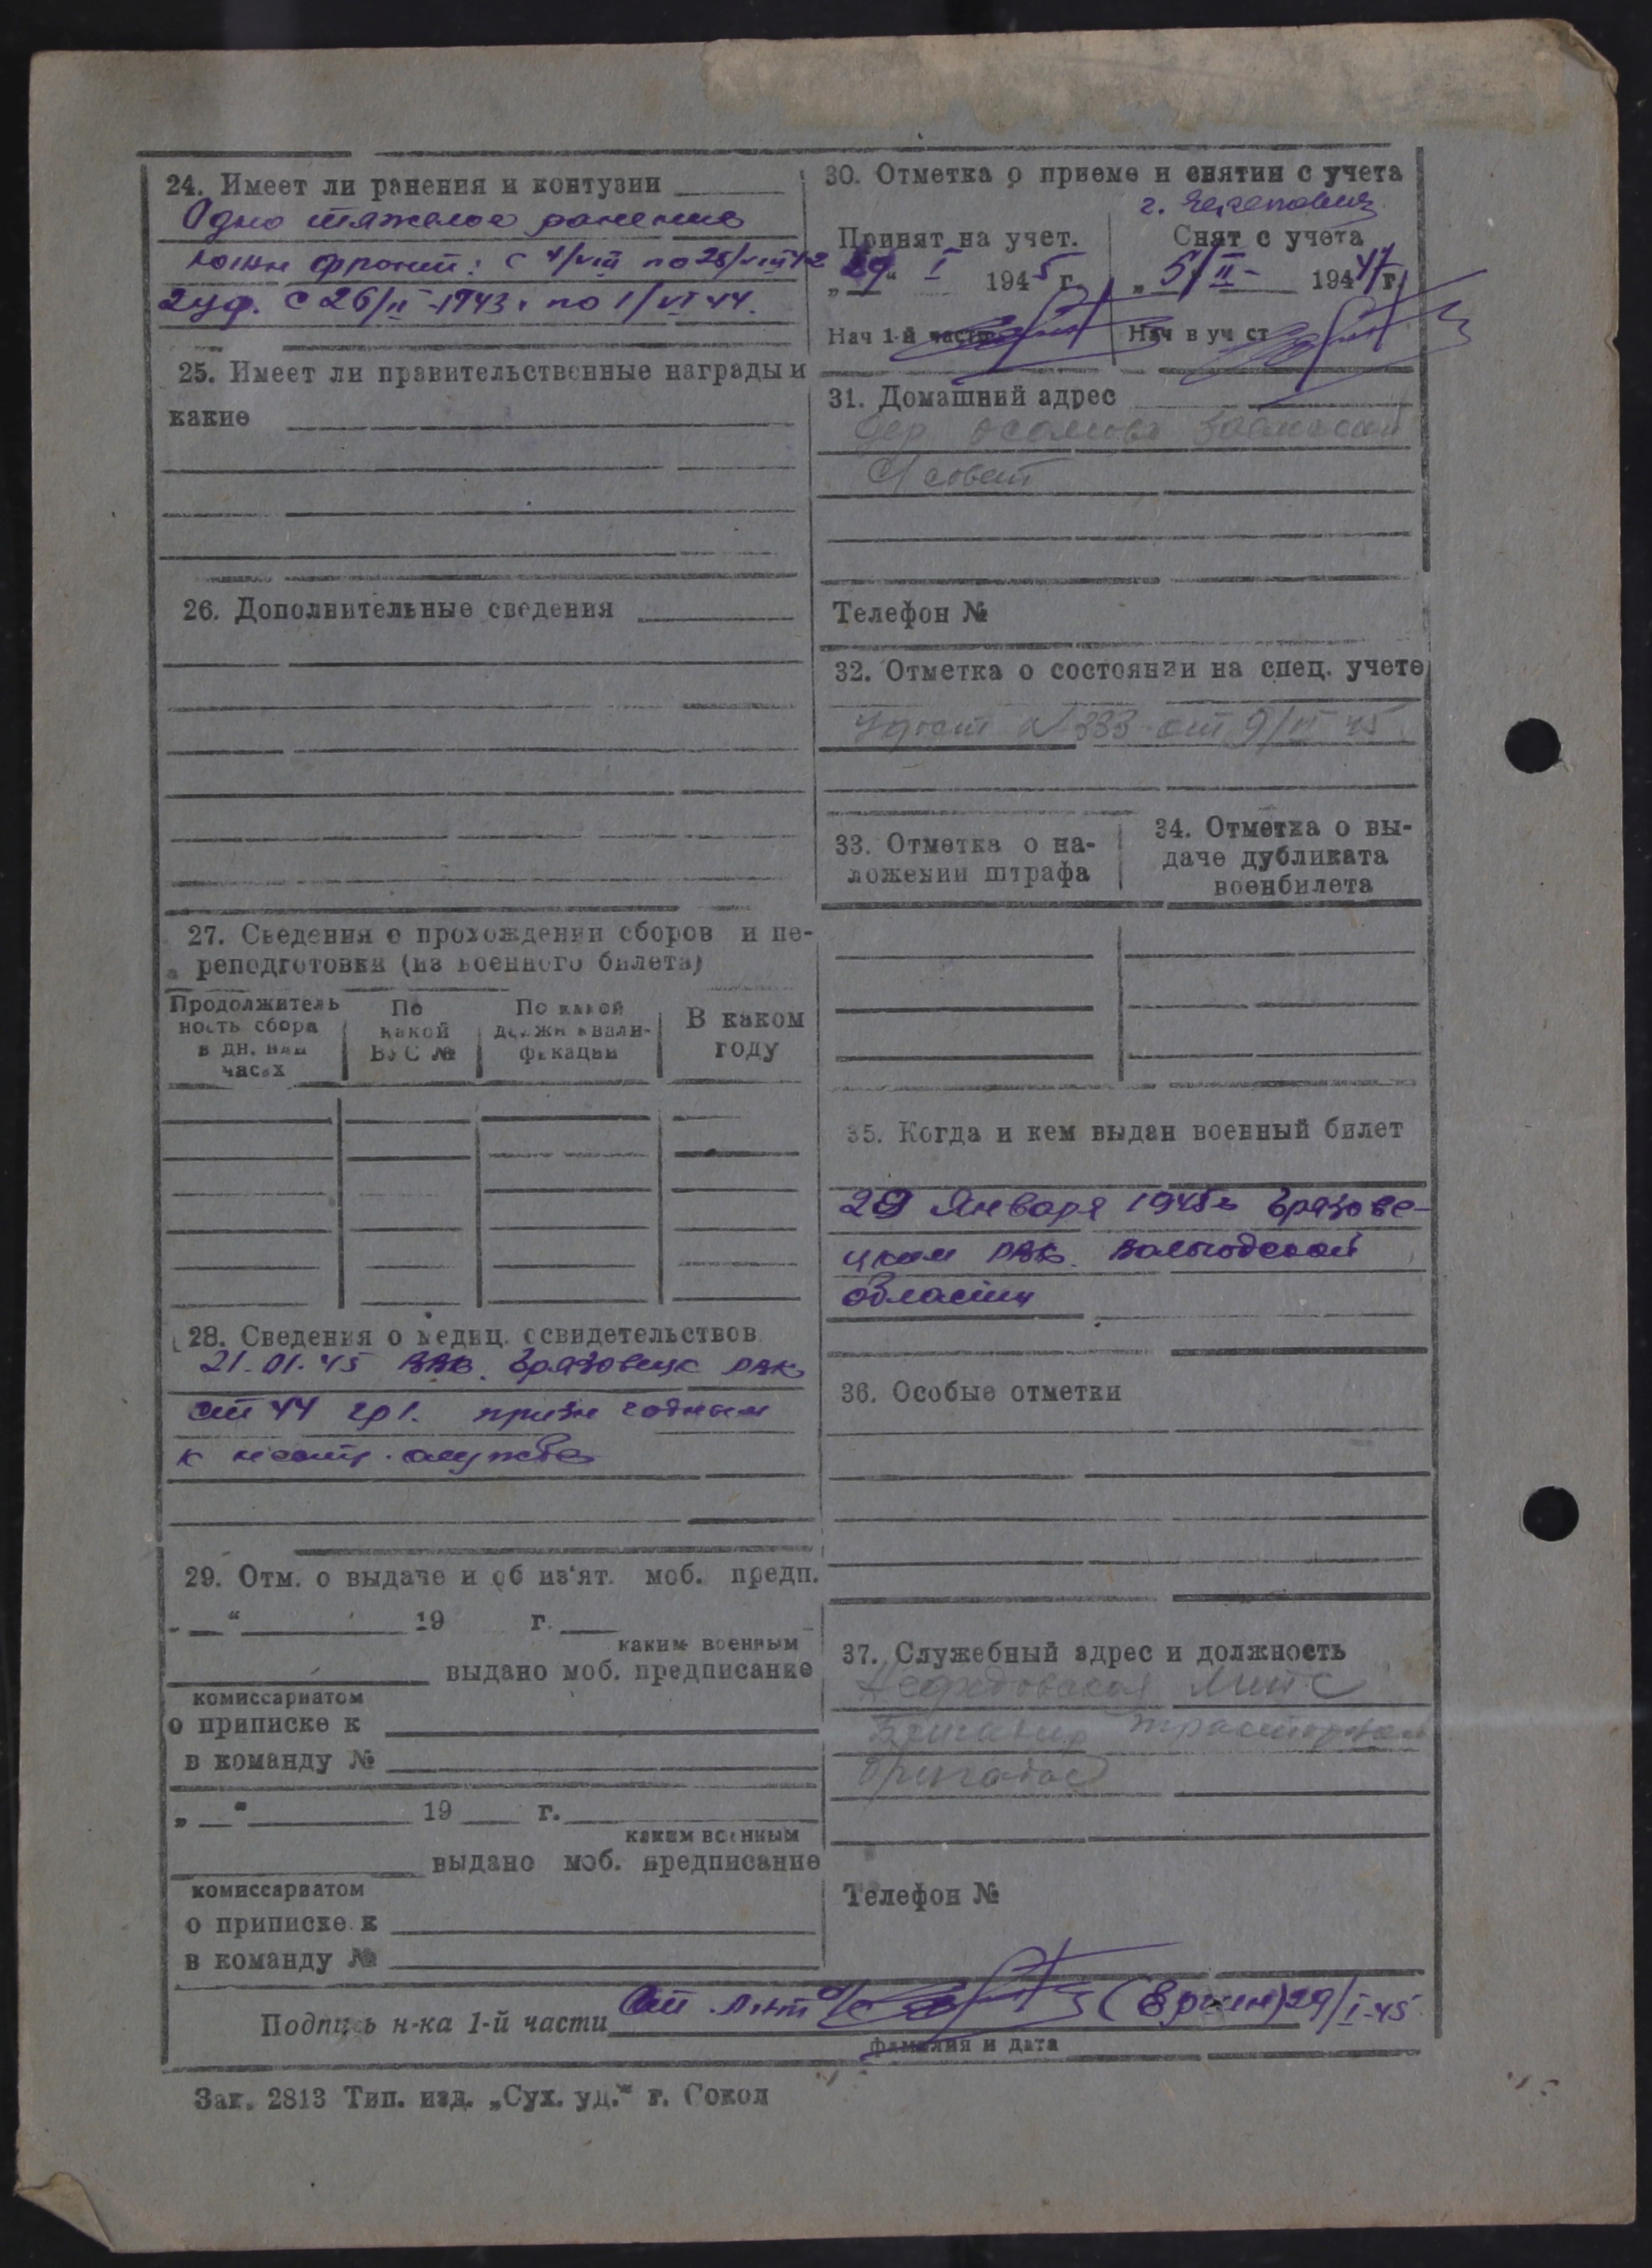 24. Имеет ли ранения и контузии
Одно тяжелое ранение
южн фронт: с 4/VIII по 28/VIII 42
2 уф. с 26/II-1943 г по 1/VI 44.
25. Имеет ли правительственные награды и
какие
26. Дополнительные сведения
27. Сведения о прохождении сборов и пе-
реподготовки (из военного билета)
Продолжитель
ность сбора
в дн. или
часах
По
какой
ВУС №
По какой
должн квали-
фикации
В каком
году
28. Сведения о медиц. освидетельствов
21.01.45 ВВК. Грязовецк РВК
ст 44 гр 1. призн годным
к нест. службе
29. Отм. о выдаче и об из'ят. моб. предп.
„ “ 19 г.
каким военным
выдано моб. предписание
комиссариатом
о приписке к
в команду №
„ “ 19 г.
каким военным
выдано моб. предписание
комиссариатом
о приписке к
в команду №
30. Отметка о приеме и снятии с учета
г. Череповец
Принят на учет.
„29“ I 1945 г.
Нач 1-й части
Снят с учета
„5/II- 1947 г.
Нач в уч ст
31. Домашний адрес
Дер
С/совет
Телефон №
32. Отметка о состоянии на спец. учете
Удост №333 от 9/VI 45
33. Отметка о на-
ложении штрафа
34. Отметка о вы-
даче дубликата
военбилета
35. Когда и кем выдан военный билет
29 Января 1945 г Грязове-
цким РВК. Вологодской
области
36. Особые отметки
37. Служебный адрес и должность
МТС
тракторной
бригады
Телефон №
Подпись н-ка 1-й части Ст. Лнт (Ершин) 29/I-45
фамилия и дата
Зак. 2813 Тип. изд. „Сух. уд.“ г. Сокол